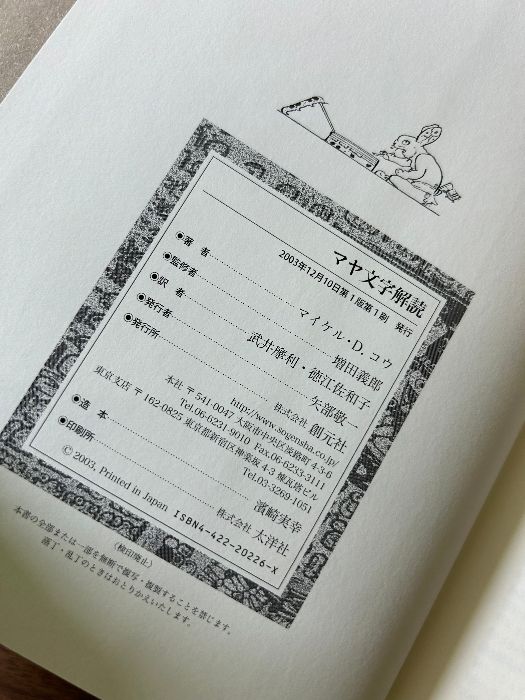 マヤ文字解読
2003年12月10日第1版第1刷 発行
●著 者 マイケル・D. コウ
●監修者 増田義郎
●訳 者 武井摩利・徳江佐和子
●発行者 矢部敬一
●発行所 株式会社 創元社
http://www.sogensha.co.jp/
本社 〒541-0047 大阪市中央区淡路町 4-3-6
Tel.06-6231-9010 Fax.06-6233-3111
東京支店 〒162-0825 東京都新宿区神楽坂 4-3 煉瓦塔ビル
Tel.03-3269-1051
●造 本 濱崎実幸
●印刷所 株式会社 太洋社
© 2003, Printed in Japan ISBN4-422-20226-X
〈検印廃止〉
本書の全部または一部を無断で複写・複製することを禁じます。
落丁・乱丁のときはおとりかえいたします。